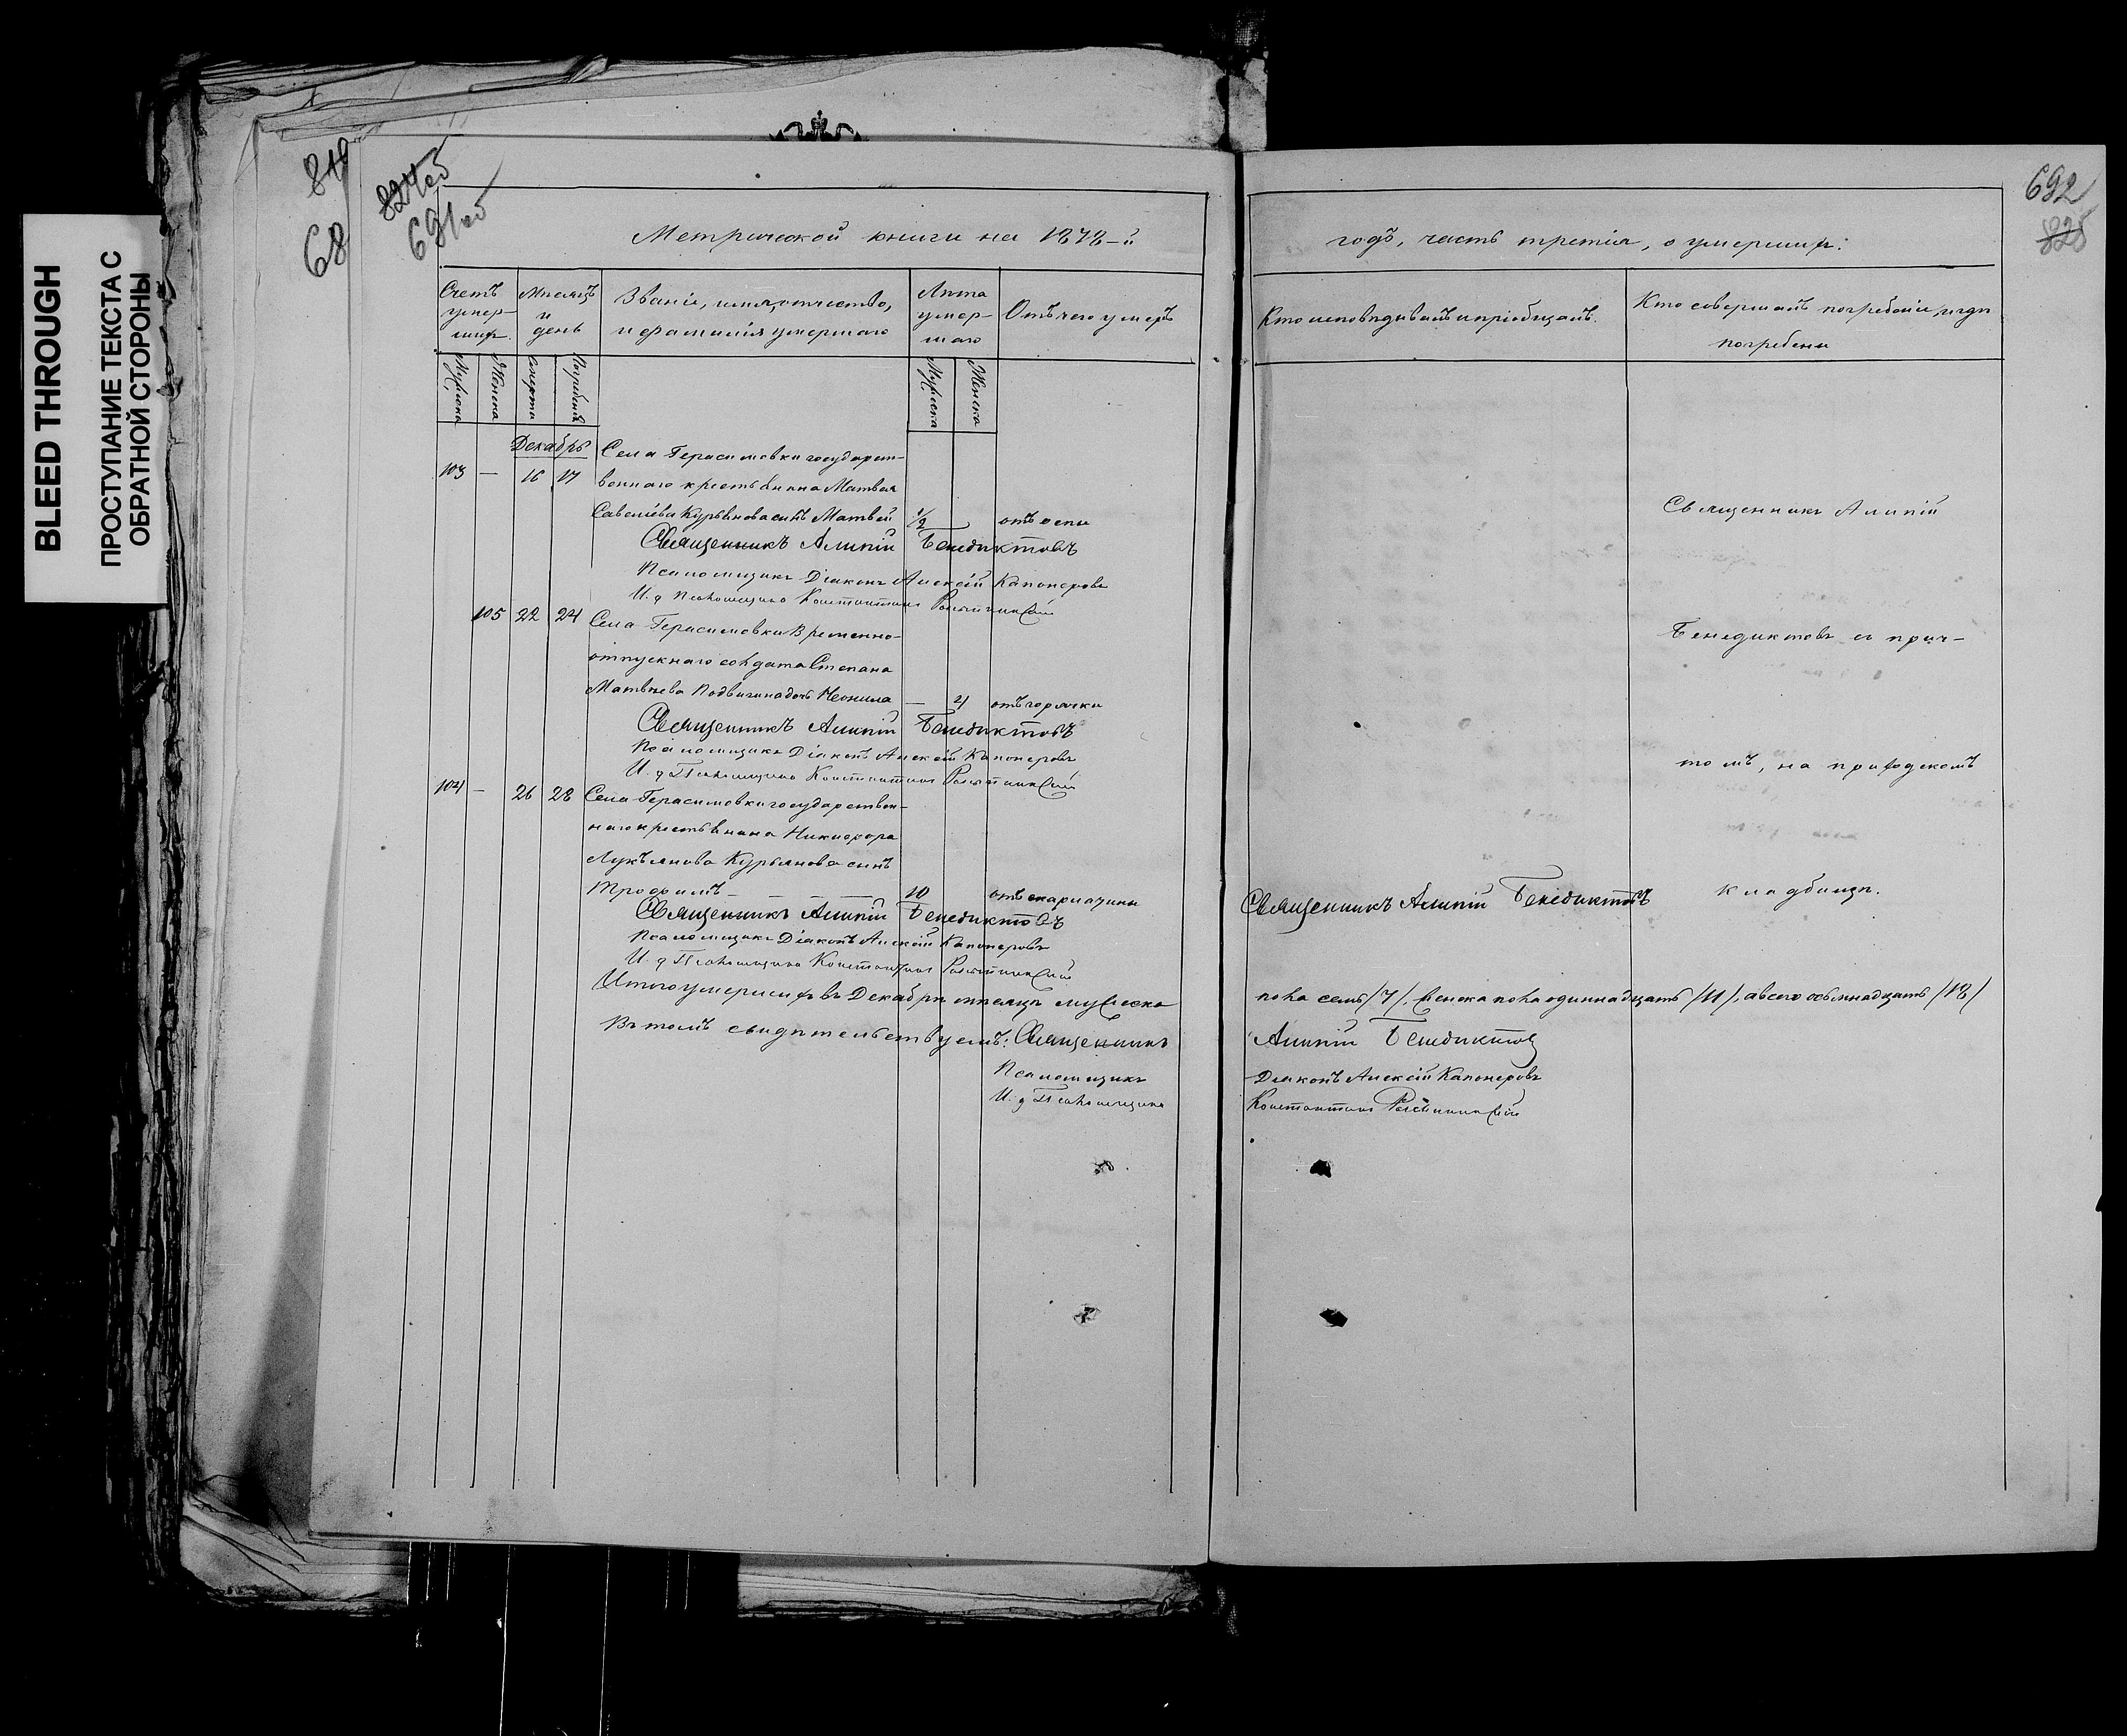 BLEED THROUGH
ПРОСТУПАНИЕ ТЕКСТА С
ОБРАТНОЙ СТОРОНЫ
819
68
824об
691об
Метрической книги на 1878-й
Счетъ умер-шихъ.
Мѣсяцъ и день
Званіе, имя, отчество,
и фамилія умершаго
Лѣта умер-шаго
Отъ чего умеръ
Мужеска
Женска
смерти
погребенія
Мужеска
Женска
Декабрь
103 — 16 17 Села Герасимовки государст-
веннаго крестьянина Матвея
Савельева Курьянова сынъ Матвей 1/2 отъ оспы
Священникъ Алипій Бенедиктовъ
Псаломщикъ Діаконъ Алексѣй Капонеровъ
И. д. Псаломщика Константинъ
105 22 24 Села Герасимовки временно-
отпускнаго солдата Степана
Матвѣева Подвигина дочь Неонила — 4 отъ горячки
Священникъ Алипій Бенедиктовъ
Псаломщикъ Діаконъ Алексѣй Капонеровъ
И. д. Псаломщика Константинъ
104 — 26 28 Села Герасимовки государствен-
наго крестьянина Никифора
Лукъянова Курьянова сынъ
Трофимъ 10 отъ скарлатины
Священникъ Алипій Бенедиктовъ
Псаломщикъ Діаконъ Алексѣй Капонеровъ
И. д. Псаломщика Константинъ
Итого умершихъ въ Декабрѣ мѣсяцѣ мужеска
Въ томъ свидѣтельствуемъ: Священникъ
Псаломщикъ
И. д. Псаломщика
692
825
годъ, часть третія, о умершихъ:
Кто исповѣдывалъ и пріобщалъ.
Кто совершалъ погребеніе, и гдѣ
погребены
Священникъ Алипій
Бенедиктовъ съ прич-
томъ, на приходскомъ
кладбищѣ.
Священникъ Алипій Бенедиктовъ
пола семь /7/, женска пола одиннадцать /11/, а всего осьмнадцать /18/
Алипій Бенедиктовъ
Діаконъ Алексѣй Капонеровъ
Константинъ